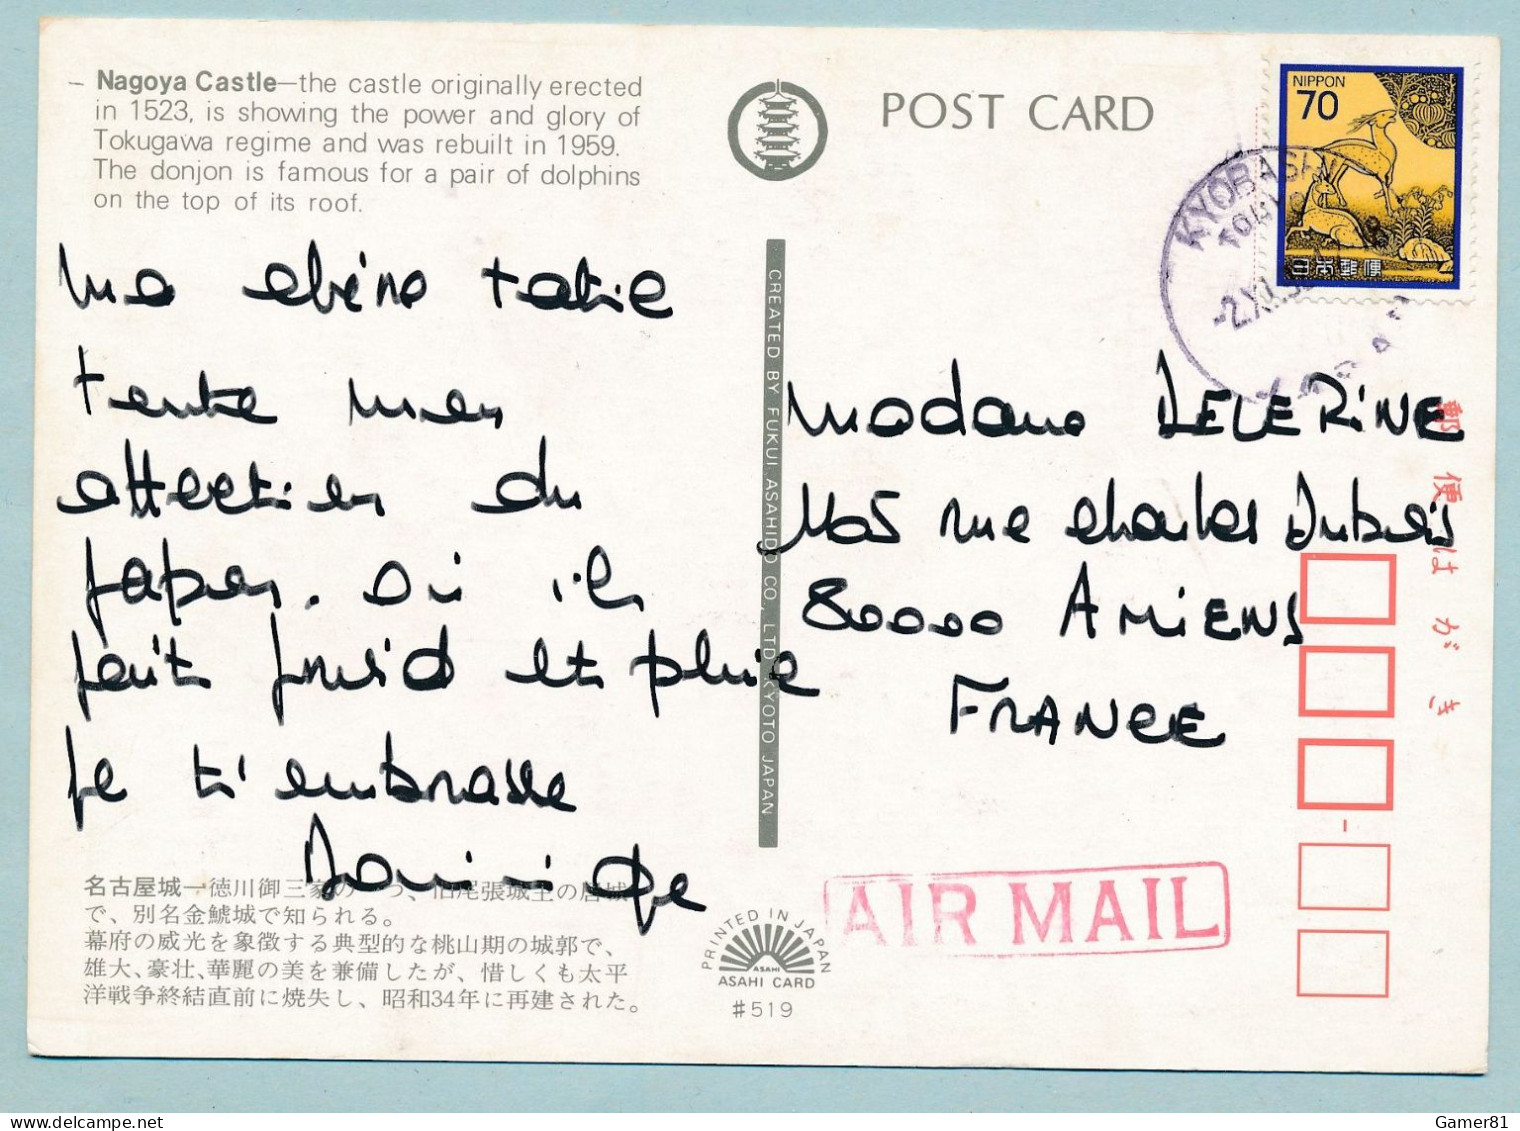 Nagoya Castle—the castle originally erected
in 1523, is showing the power and glory of
Tokugawa regime and was rebuilt in 1959.
The donjon is famous for a pair of dolphins
on the top of its roof.
POST CARD
NIPPON
70
日本郵便
KYOBASHI
TOKYO
-2.XII.
Ma chère tatie
Tente mes
affection du
Japon. Ou il
fait froid et pluie
Je t'embrasse
Dominique
CREATED BY FUKUI ASAHIDO CO., LTD KYOTO JAPAN
Madame DELERINE
rue charles Dubois
80000 AMIENS
FRANCE
郵便はがき
AIR MAIL
名古屋城—徳川御三家の一つ、旧尾張城主の居城
で、別名金鯱城で知られる。
幕府の威光を象徴する典型的な桃山期の城郭で、
雄大、豪壮、華麗の美を兼備したが、惜しくも太平
洋戦争終結直前に焼失し、昭和34年に再建された。
PRINTED IN JAPAN
ASAHI
ASAHI CARD
#519
Gamer81